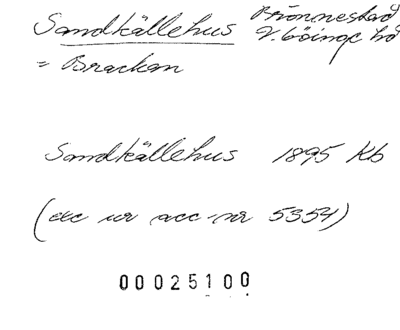 Sandkällehus Brönnestad
V. Göinge hd
= Brackan
Sandkällehus 1895 Kb
(exc ur acc-nr 5354)
00025100